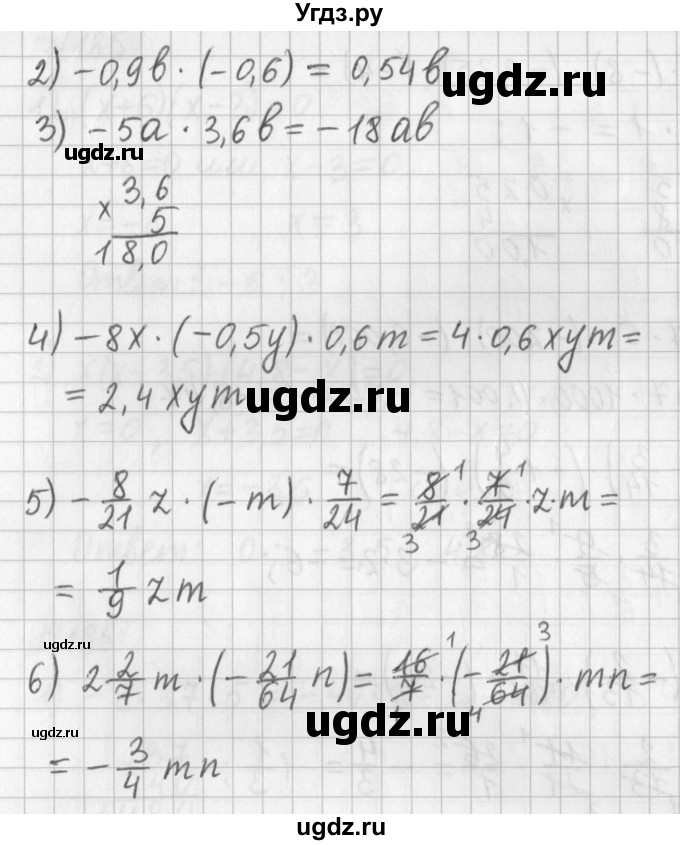 Угдз.ру
2) -0,9в · (-0,6) = 0,54в
ugdz.ru
3) -5а · 3,6в = -18ав
ugdz.ru
× 3,6
- 5
18,0
4) -8x · (-0,5y) · 0,6m = 4 · 0,6xym =
= 2,4xym
ugdz.ru
5) - 8/21 z · (-m) · 7/24 = 8/21 · 7/24 · z · m =
1 1
3 3
= 1/9 zm
ugdz.ru
6) 2 2/7 m · (- 21/64 n) = 16/7 · (- 21/64) · mn =
1 3
4
ugdz.ru
ugdz.ru
= - 3/4 mn
ugdz.ru